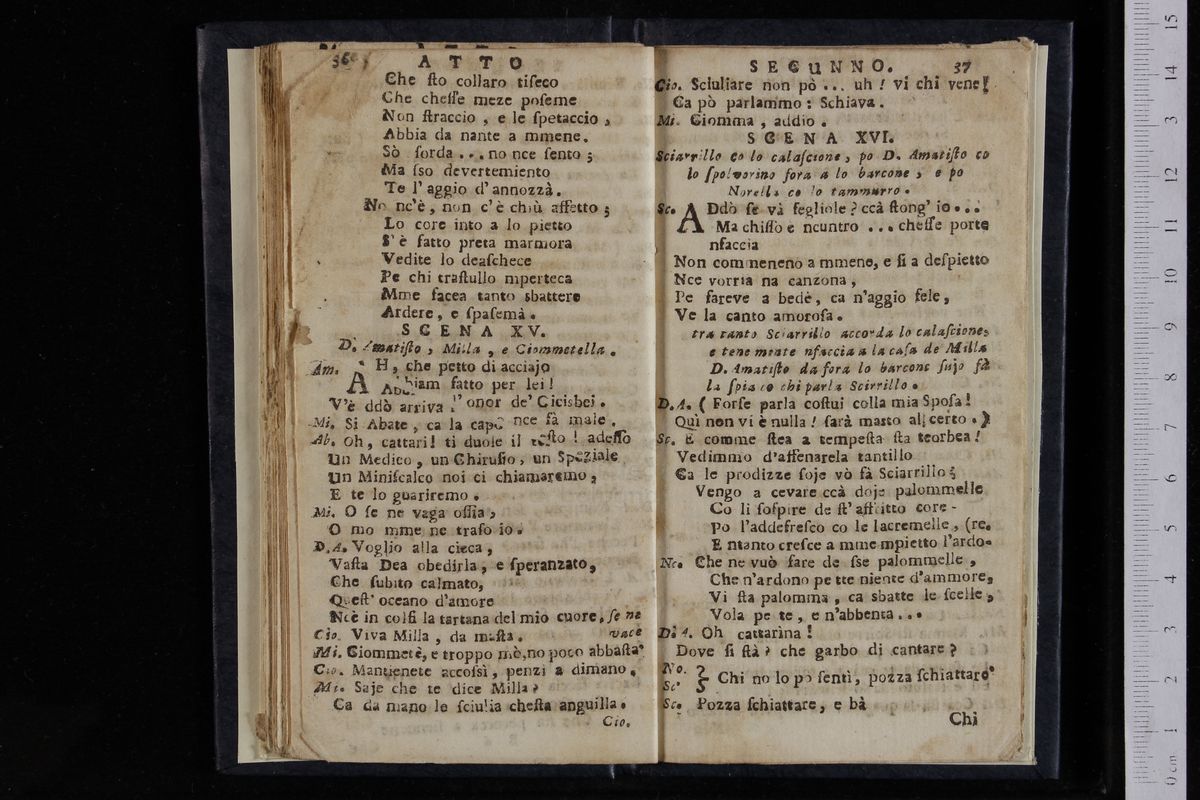 36 ATTO
Che ſto collaro tiſeco
Che cheſſe meze poſeme
Non ſtraccio, e le ſpetaccio,
Abbia da nante a mmene.
Sò ſorda... no nce ſento;
Ma ſso devertemiento
Te l'aggio d'annozzà.
No nc'è, non c'è chiù affetto;
Lo core into a lo pietto
S'è fatto preta marmora
Vedite lo deaſchece
Pe chi traſtullo mperteca
Mme facea tanto sbattere
Ardere, e ſpaſemà.
SCENA XV.
D. Amatiſto, Milla, e Ciommetella.
Am. AH, che petto di acciajo
Abbiam fatto per lei!
V'è ddò arriva l'onor de' Cicisbei.
Mi. Si Abate, ca la capo nce fà male.
Ab. Oh, cattari! ti duole il teſto! adeſſo
Un Medico, un Chiruſio, un Speziale
Un Miniſcalco noi ci chiamaremo,
E te lo guariremo.
Mi. O ſe ne vaga oſſia,
O mo mme ne traſo io.
D.A. Voglio alla cieca,
Vaſta Dea obedirla, e ſperanzato,
Che ſubito calmato,
Queſt' oceano d'amore
Ncè in colfi la tartana del mio cuore. ſe ne
Cio. Viva Milla, da maſta. vace
Mi. Ciommetè, e troppo mè, no poco abbaſta.
Cio. Mantienete accoſsì, penzi a dimano.
Mi. Saje che te dice Milla?
Ca da mano le ſciulia cheſta anguilla.
Cio.
SECUNNO. 37
Cio. Sciuliare non pò... uh! vi chi vene!
Ca pò parlammo: Schiava.
Mi. Ciomma, addio.
SCENA XVI.
Sciarrillo co lo calaſcione, po D. Amatiſto co
lo ſpolverino fora a lo barcone, e po
Norella co lo tammurro.
Sc. ADdò ſe và fegliole? ccà ſtong' io...
Ma chiſſo è ncuntro... cheſſe porte
nfaccia
Non commeneno a mmene, e ſi a deſpietto
Nce vorria na canzona,
Pe fareve a bedè, ca n'aggio fele,
Ve la canto amoroſa.
tra tanto Sciarrillo accorda lo calaſcione,
e tene mente nfaccia a la caſa de Milla
D. Amatiſto da fora lo barcone ſujo fà
la ſpia co chi parla Scirrillo.
D.A. (Forſe parla coſtui colla mia Spoſa!
Quì non vi è nulla! ſarà matto al certo.)
Sc. E comme ſtea a tempeſta ſta teorbea!
Vedimmo d'affenarela tantillo
Ca le prodizze ſoje vò fà Sciarrillo;
Vengo a cevare ccà doje palommelle
Co li ſoſpire de ſt' affritto core-
Po l'addefreſco co le lacremelle, (re.
E ntanto creſce a mme mpietto l'ardo-
No. Che ne vuò fare de ſse palommelle,
Che n'ardono pe tte niente d'ammore,
Vi ſta palomma, ca sbatte le ſcelle,
Vola pe te, e n'abbenta...
D. A. Oh cattarina!
Dove ſi ſtà? che garbo di cantare?
No.
Sc. Chi no lo pò ſentì, pozza ſchiattare
Sc. Pozza ſchiattare, e bà
Chi